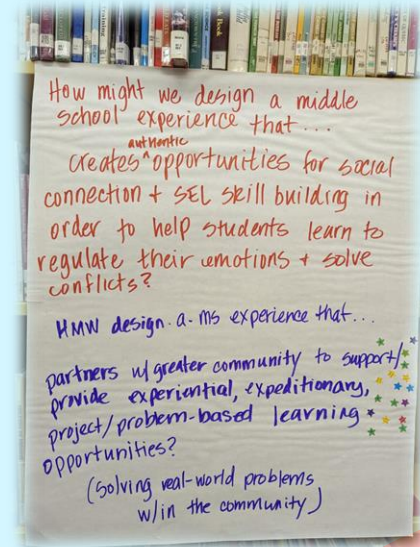 How might we design a middle
school experience that...
authentic
creates ^ opportunities for social
connection + SEL skill building in
order to help students learn to
regulate their emotions + solve
conflicts?
HMW design a ms experience that...
partners w/ greater community to support/
provide experiential, expeditionary,
project/problem-based learning
opportunities?
(solving real-world problems
w/in the community)